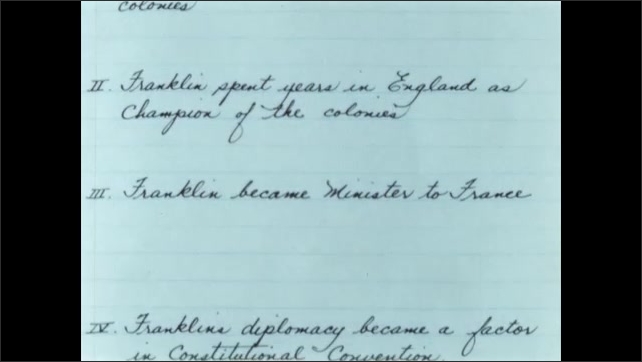 colonies
II. Franklin spent years in England as
Champion of the colonies
III. Franklin became Minister to France
IV. Franklins diplomacy became a factor
in Constitutional Convention